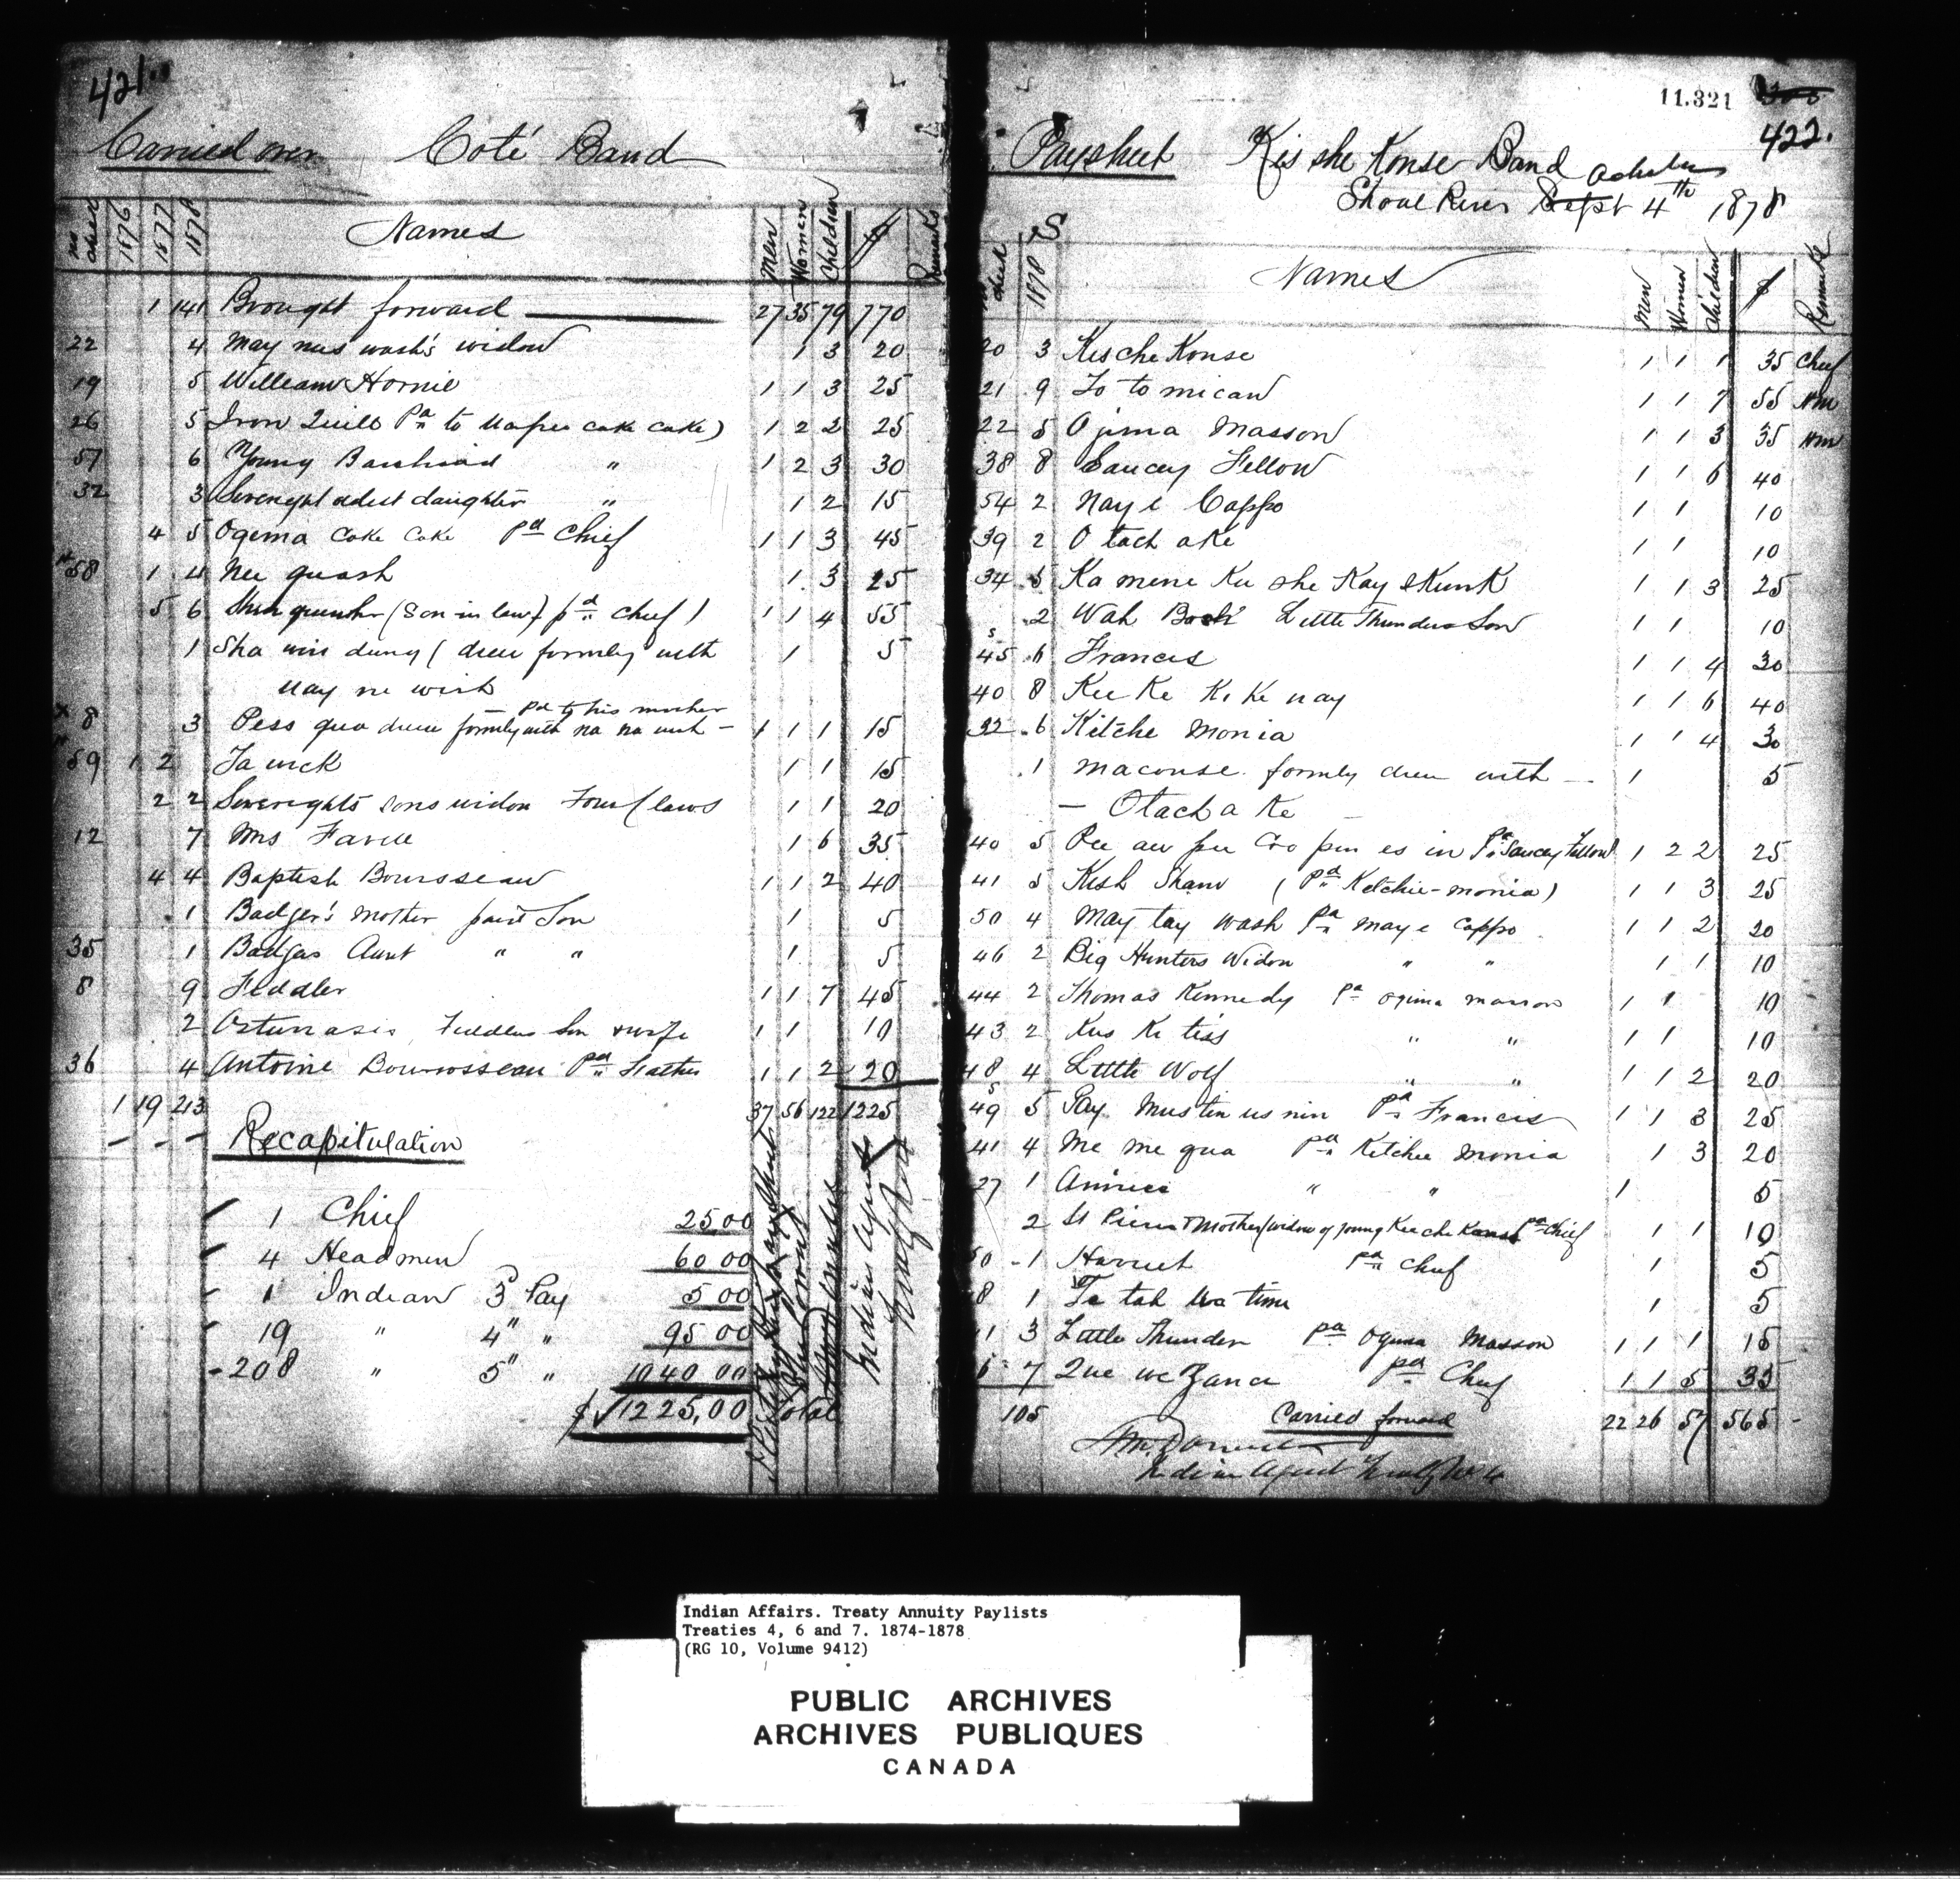 421.
Carried over Coté Band
no ticket 1876 1877 1878 Names Men Women Children $ Remarks
1 141 Brought forward 27 35 79 770
22 4 May nus wash's widow 1 3 20
19 5 William Hornie 1 1 3 25
26 5 Iron Quill Pd to cake cake) 1 2 2 25
57 6 Young " 1 2 3 30
32 3 oldest daughter " 1 2 15
4 5 Ogema Cake Cake Pd Chief 1 1 3 45
58 1 4 Nee quash 1 3 25
5 6 (Son in law) pd Chief) 1 1 4 55
1 Sha win dung (drew formly with 1 5
Nay ne wish
— Pd to his mother
8 3 Pess qua drew formly with na na wish — 1 1 1 15
59 1 2 Ta wick 1 1 15
2 2 sons widow Four Claws 1 1 20
12 7 Mrs Favel 1 6 35
4 4 Baptish Bourosseau 1 1 2 40
1 Badger's mother paid Son 1 5
35 1 Badgers Aunt " " 1 5
8 9 Feddler 1 1 7 45
2 Son & wife 1 1 10
36 4 Antoine Bourosseau Pd Father 1 1 2 20
1 19 213 37 56 122 1225
Recapitulation
1 Chief 25 00
4 Headmen 60 00
1 Indian 3 Pay 5 00
19 " 4" " 95 00
208 " 5" " 1040 00
$ 1225,00
Total
Indian Agent
11.321
422.
Paysheet Kis she Konse Band
Shoal River Sept 4th 1878
ticket 1878 Names Men Women Children $ Remarks
20 3 Kische Konse 1 1 1 35 Chief
21 9 To to mican 1 1 7 55 Hm
22 5 Ojima Masson 1 1 3 35 Hm
38 8 Saucey Fellow 1 1 6 40
54 2 Nay e Cappo 1 1 10
39 2 O tach a Ke 1 1 10
34 5 Ka mene Ku she Kay skunk 1 1 3 25
2 Wah Little Thunders Son 1 1 10
45 6 Francis 1 1 4 30
40 8 Kee Ke Ke Ke nay 1 1 6 40
32 6 Kitche Monia 1 1 4 30
1 Maconse formly drew with — 1 5
— Otach a Ke
40 5 Pee aw pee Coo pin es in Pd Saucey Fellow 1 2 2 25
41 5 Kish Shaw (Pd Ketchie-monia) 1 1 3 25
50 4 May tay wash Pd may e Cappo 1 1 2 20
46 2 Big Hunters Widow " " 1 1 10
44 2 Thomas Kennedy Pd Ogima masson 1 1 10
43 2 Kus Ke tiss " " 1 1 10
48 4 Little Wolf " " 1 1 2 20
49 5 Pay Mus tin us nin Pd Francis 1 1 3 25
41 4 Me me qua Pd Kitchee Monia 1 3 20
27 1 " " 1 5
2 St Pierre's Mother (widow of young Kee che Konse Pd Chief 1 1 10
50 1 Harriet Pd Chief 1 5
8 1 Te tah wa time 1 5
11 3 Little Thunder Pd Ogima Masson 1 1 1 15
6 7 Que we Zance Pd Chief 1 1 5 35
105 Carried forward 22 26 57 565
Indian Agent
Indian Affairs. Treaty Annuity Paylists
Treaties 4, 6 and 7. 1874-1878
(RG 10, Volume 9412)
PUBLIC ARCHIVES
ARCHIVES PUBLIQUES
CANADA